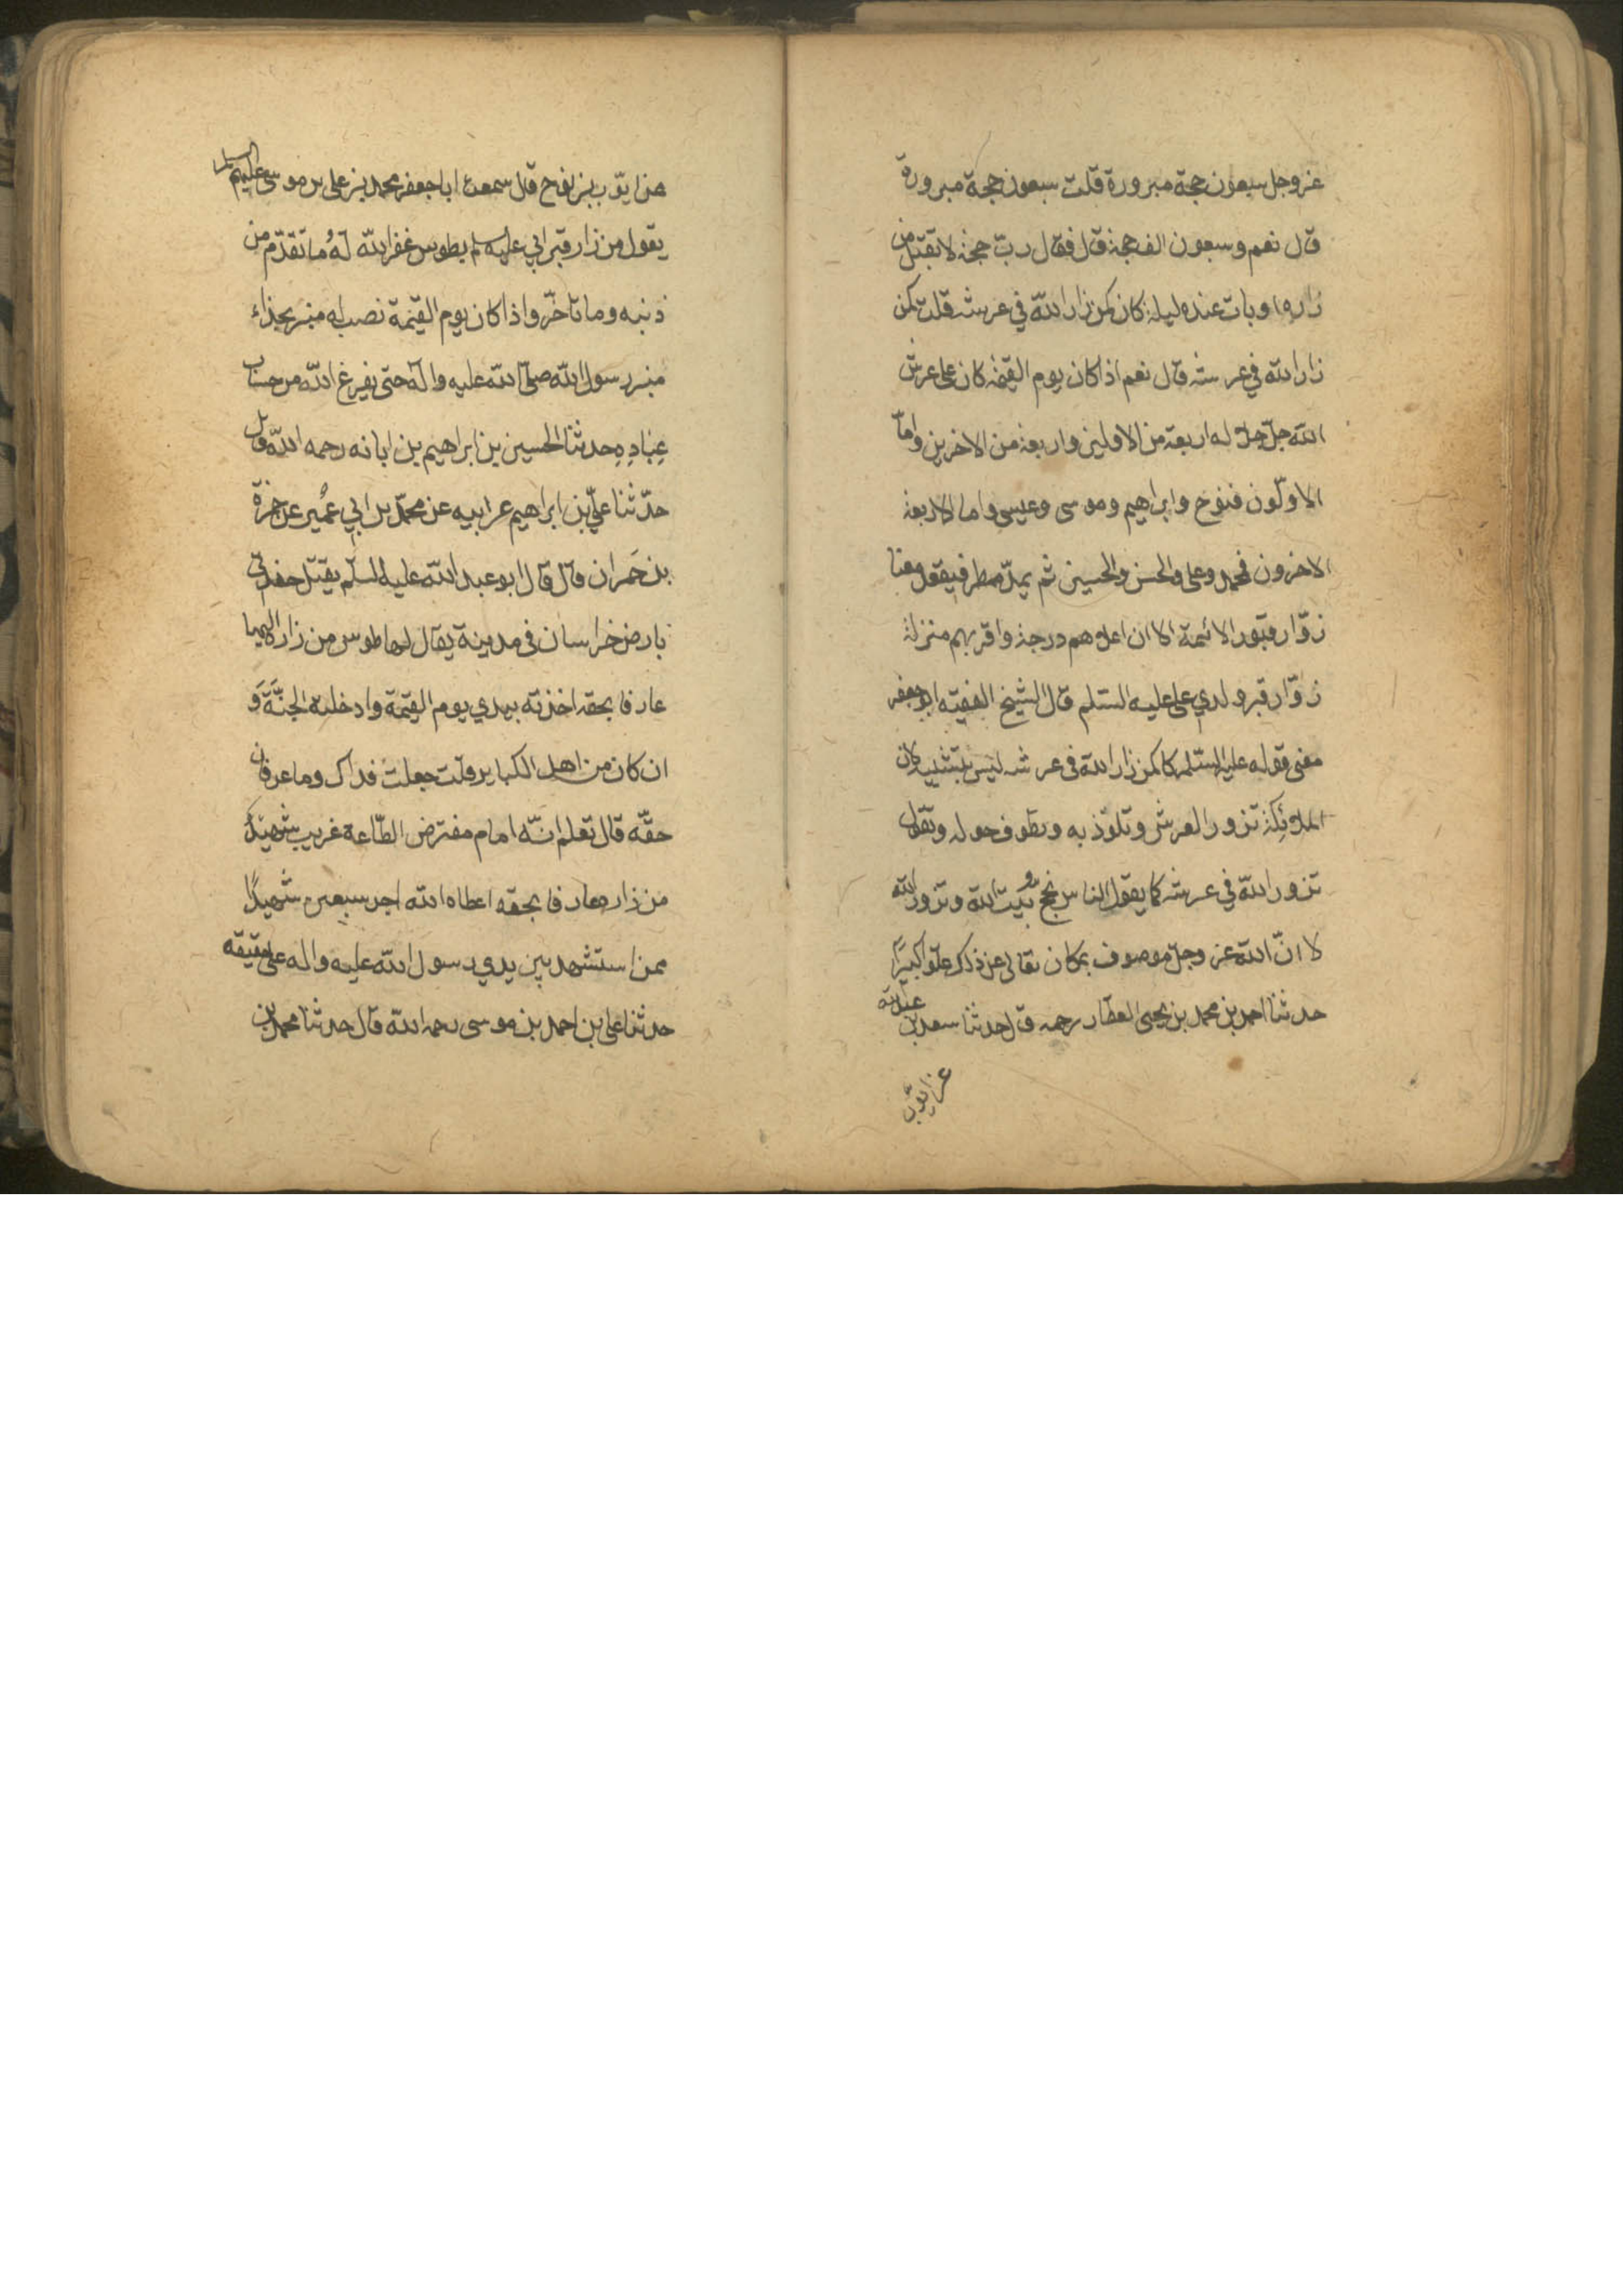 عز وجل سبعون حجة مبرورة قلت سبعون حجة مبرورة
قال نعم وسبعون الف حجة قال فقال رب حجة لا تقبل من
زاره او بات عنده ليلة كان كمن زار الله في عرشه قلت كمن
زار الله في عرشه قال نعم اذا كان يوم القيمة كان على عرش
الله جل جلاله اربعة من الاولين واربعة من الاخرين واما
الاولون فنوح وابراهيم وموسى وعيسى واما الاربعة
الاخرون فمحمد وعلي والحسن والحسين ثم يمد المطر فيقعد معنا
زوار قبور الائمة الا ان اعلاهم درجة واقربهم منزلة
زوار قبر ولدي علي عليه السلم قال الشيخ الفقيه ابو جعفر
معنى قوله عليه السلم كان كمن زار الله في عرشه ليس بتشبيه لان
الملائكة تزور العرش وتلوذ به وتطوف حوله وتقول
تزور الله في عرشه كما يقول الناس نحج بيت الله ونزور الله
لا ان الله عز وجل موصوف بمكان تعالى عن ذلك علوا كبيرا
حدثنا احمد بن محمد بن يحيى العطار رحمه قال حدثنا سعد بن عبد الله
عن ايوب
عن ايوب بن نوح قال سمعت ابا جعفر محمد بن علي بن موسى عليهم السلم
يقول من زار قبر ابي عليه السلم بطوس غفر الله لهُ ما تقدّم من
ذنبه وما تاخّر واذا كان يوم القيمة نصب له منبر بحذاء
منبر رسول الله صلى الله عليه واله حتى يفرغ الله من حساب
عِبادِهِ حدثنا الحسين بن ابراهيم بن اباته رحمه الله قال
حدّثنا عليّ بن ابراهيم عن ابيه عن محمّد بن ابي عُمير عن حمزة
بن حَمران قال قال ابو عبد الله عليه السلم يقتل حفدتي
بارض خراسان في مدينة يقال لها طوس من زاره اليها
عارفا بحقه اخذته بيدي يوم القيمة وادخلته الجنَّةَ وَ
ان كان من اهل الكباير قلت جعلتُ فداك وما عرفان
حقّه قال تعلم انّه امام مفترض الطّاعة غريب شهيد
من زاره عارفا بحقه اعطاه الله اجر سبعين شهيدًا
ممن استشهد بين يدي رسول الله عليه واله على حقيقه
حدثنا علي بن احمد بن موسى رحمه الله قال حدثنا محمد بن